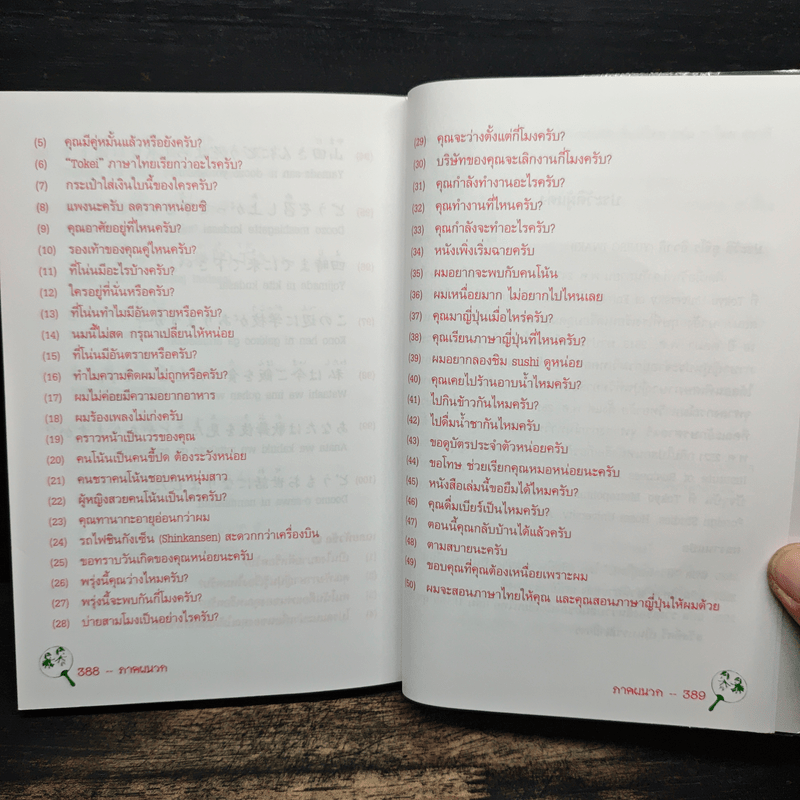 (5) คุณมีคู่หมั้นแล้วหรือยังครับ?
(6) "Tokei" ภาษาไทยเรียกว่าอะไรครับ?
(7) กระเป๋าใส่เงินใบนี้ของใครครับ?
(8) แพงนะครับ ลดราคาหน่อยซิ
(9) คุณอาศัยอยู่ที่ไหนครับ?
(10) รองเท้าของคุณคู่ไหนครับ?
(11) ที่โน่นมีอะไรบ้างครับ?
(12) ใครอยู่ที่นั่นหรือครับ?
(13) ที่โน่นทำไมมีอันตรายหรือครับ?
(14) นมนี้ไม่สด กรุณาเปลี่ยนให้หน่อย
(15) ที่โน่นมีอันตรายหรือครับ?
(16) ทำไมความคิดผมไม่ถูกหรือครับ?
(17) ผมไม่ค่อยมีความอยากอาหาร
(18) ผมร้องเพลงไม่เก่งครับ
(19) คราวหน้าเป็นเวรของคุณ
(20) คนโน้นเป็นคนขี้ปด ต้องระวังหน่อย
(21) คนชราคนโน้นชอบคนหนุ่มสาว
(22) ผู้หญิงสวยคนโน้นเป็นใครครับ?
(23) คุณทานากะอายุอ่อนกว่าผม
(24) รถไฟชินกังเซ็น (Shinkansen) สะดวกกว่าเครื่องบิน
(25) ขอทราบวันเกิดของคุณหน่อยนะครับ
(26) พรุ่งนี้คุณว่างไหมครับ?
(27) พรุ่งนี้จะพบกันกี่โมงครับ?
(28) บ่ายสามโมงเป็นอย่างไรครับ?
388 - ภาคผนวก
(29) คุณจะว่างตั้งแต่กี่โมงครับ?
(30) บริษัทของคุณจะเลิกงานกี่โมงครับ?
(31) คุณกำลังทำงานอะไรครับ?
(32) คุณทำงานที่ไหนครับ?
(33) คุณกำลังจะทำอะไรครับ?
(34) หนังเพิ่งเริ่มฉายครับ
(35) ผมอยากจะพบกับคนโน้น
(36) ผมเหนื่อยมาก ไม่อยากไปไหนเลย
(37) คุณมาญี่ปุ่นเมื่อไหร่ครับ?
(38) คุณเรียนภาษาญี่ปุ่นที่ไหนครับ?
(39) ผมอยากลองชิม sushi ดูหน่อย
(40) คุณเคยไปร้านอาบน้ำไหมครับ?
(41) ไปกินข้าวกันไหมครับ?
(42) ไปดื่มน้ำชากันไหมครับ?
(43) ขอดูบัตรประจำตัวหน่อยครับ
(44) ขอโทษ ช่วยเรียกคุณหมอหน่อยนะครับ
(45) หนังสือเล่มนี้ขอยืมได้ไหมครับ?
(46) คุณดื่มเบียร์เป็นไหมครับ?
(47) ตอนนี้คุณกลับบ้านได้แล้วครับ
(48) ตามสบายนะครับ
(49) ขอบคุณที่คุณต้องเหนื่อยเพราะผม
(50) ผมจะสอนภาษาไทยให้คุณ และคุณสอนภาษาญี่ปุ่นให้ผมด้วย
ภาคผนวก - 389